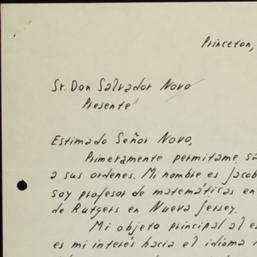 Princeton,
Sr. Don Salvador Novo
Presente
Estimado Señor Novo,
Primeramente permitame
a sus ordenes. Mi nombre es Jacob
soy profesor de matemáticas en
de Rutgers en Nueva Jersey.
Mi objeto principal al
es mi interés hacia el idioma